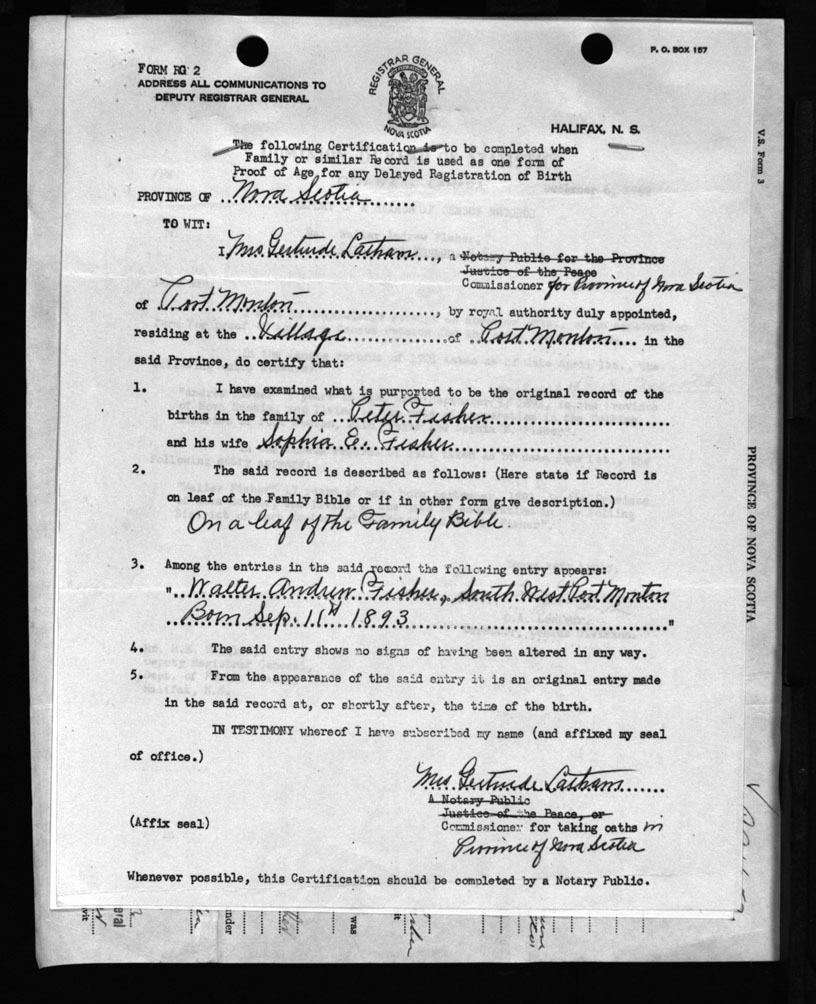 P. O. BOX 157
FORM RG 2
ADDRESS ALL COMMUNICATIONS TO
DEPUTY REGISTRAR GENERAL
REGISTRAR GENERAL
NOVA SCOTIA
HALIFAX, N. S.
The following Certification is to be completed when
Family or similar Record is used as one form of
Proof of Age for any Delayed Registration of Birth
PROVINCE OF Nova Scotia
TO WIT:
I, Mrs Gertrude Latham, a Notary Public for the Province
Justice of the Peace
Commissioner for Province of Nova Scotia
of Port Monton, by royal authority duly appointed,
residing at the Village of Port Monton in the
said Province, do certify that:
1. I have examined what is purported to be the original record of the
births in the family of Peter Fisher
and his wife Sophia E. Fisher
2. The said record is described as follows: (Here state if Record is
on leaf of the Family Bible or if in other form give description.)
On a leaf of the Family Bible.
3. Among the entries in the said record the following entry appears:
"Walter Andrew Fisher, South West Port Monton
Born Sep. 11th 1893"
4. The said entry shows no signs of having been altered in any way.
5. From the appearance of the said entry it is an original entry made
in the said record at, or shortly after, the time of the birth.
IN TESTIMONY whereof I have subscribed my name (and affixed my seal
of office.)
Mrs. Gertrude Latham
A Notary Public
Justice of the Peace, or
(Affix seal) Commissioner for taking oaths in
Province of Nova Scotia
Whenever possible, this Certification should be completed by a Notary Public.
V.S. Form 3
PROVINCE OF NOVA SCOTIA
under
was